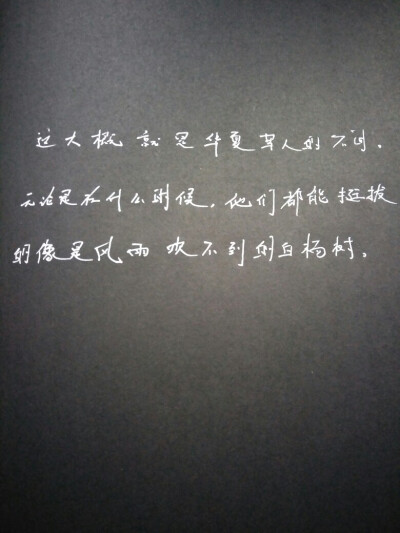 这大概就是华夏军人的不同，
无论是在什么时候，他们都能挺拔
的像是风雨吹不到的白杨树。